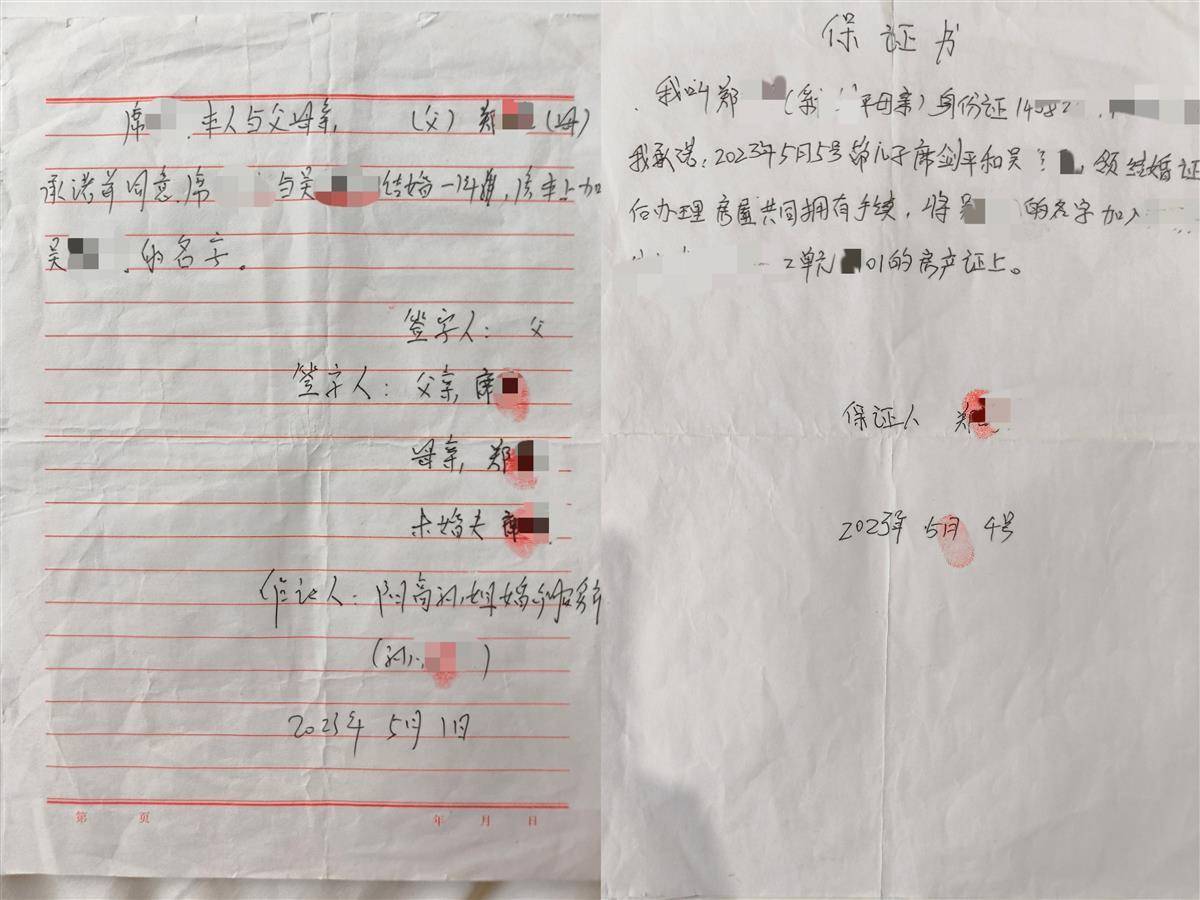 席 本人与父母亲, (父) 郑 (母)
承诺并同意席 与吴 结婚一年后, 房本上加
吴 的名字。
签字人: 父
签字人: 父亲, 席
母亲, 郑
未婚夫 席
作证人:
(孙小 )
2023年 5月 1日
第 页 年 月 日
保证书
我叫郑 ( 平母亲) 身份证14082
我承诺: 2023年5月5号 儿子席剑平和吴 领结婚证
后办理房屋共同拥有手续, 将吴 的名字加入
2单元 01的房产证上。
保证人 郑
2023年 5月 4号